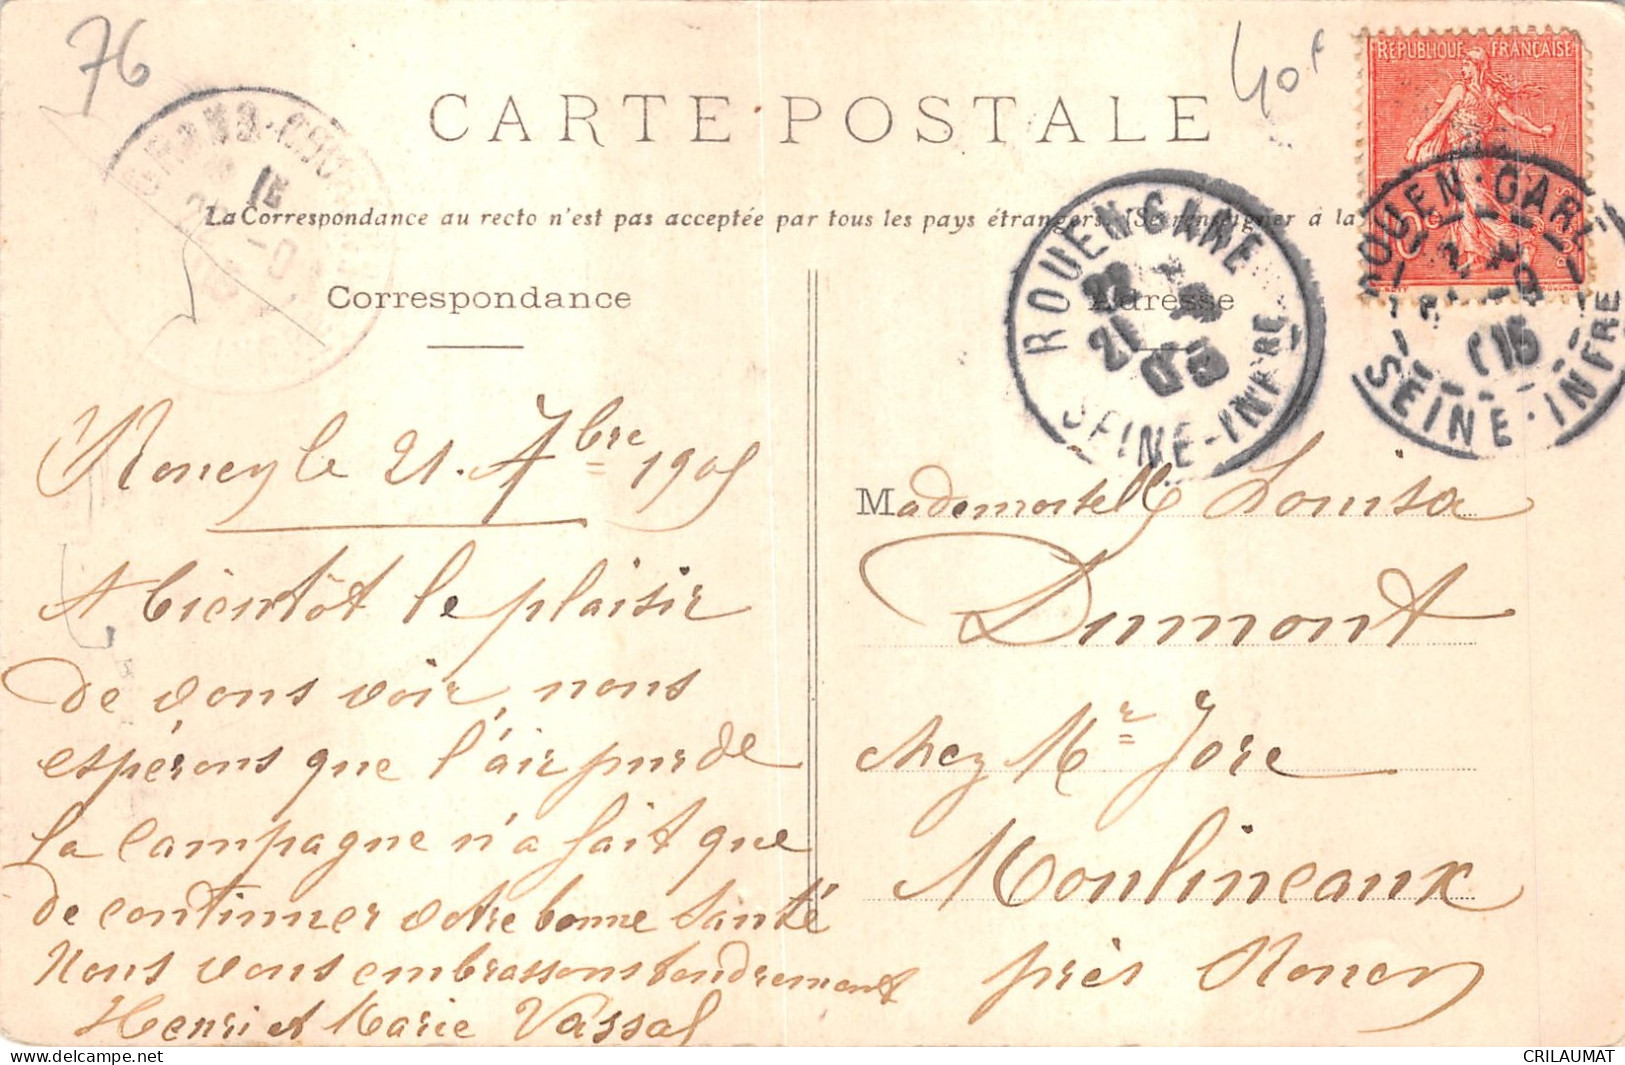 76
40f
REPUBLIQUE FRANÇAISE
CARTE POSTALE
La Correspondance au recto n'est pas acceptée par tous les pays étrangers. (Se renseigner à la
Correspondance
Adresse
ROUEN GARE
21
05
SEINE-INFRE
ROUEN-GARE
SEINE-INFRE
GRAND-COU
Rouen le 21. 7bre 1905
A bientôt le plaisir
de vous voir, nous
espérons que l'air pur de
la campagne n'a fait que
de continuer votre bonne santé
Nous vous embrassons tendrement
Henri et Marie Vassal
Mademoiselle Louisa
Dumont
chez Mr Jore
Moulineaux
près Rouen
CRILAUMAT
www.delcampe.net